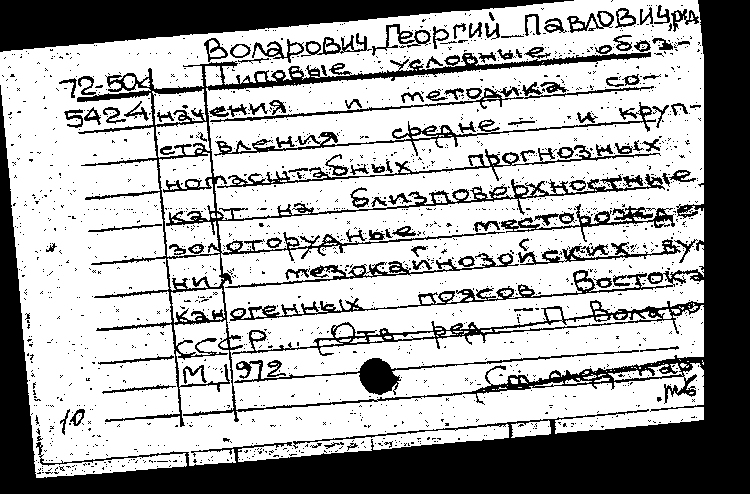 Воларович, Георгий Павлович, ред.
72-504 Типовые условные обоз-
5424 начения и методика со-
ставления средне- и круп-
номасштабных прогнозных
карт на близповерхностные
золоторудные месторожде
ния мезокайнозойских вул
каногенных поясов Востока
СССР... [Отв. ред. Г.П. Воларо
М., 1972.
См. след. кар
10